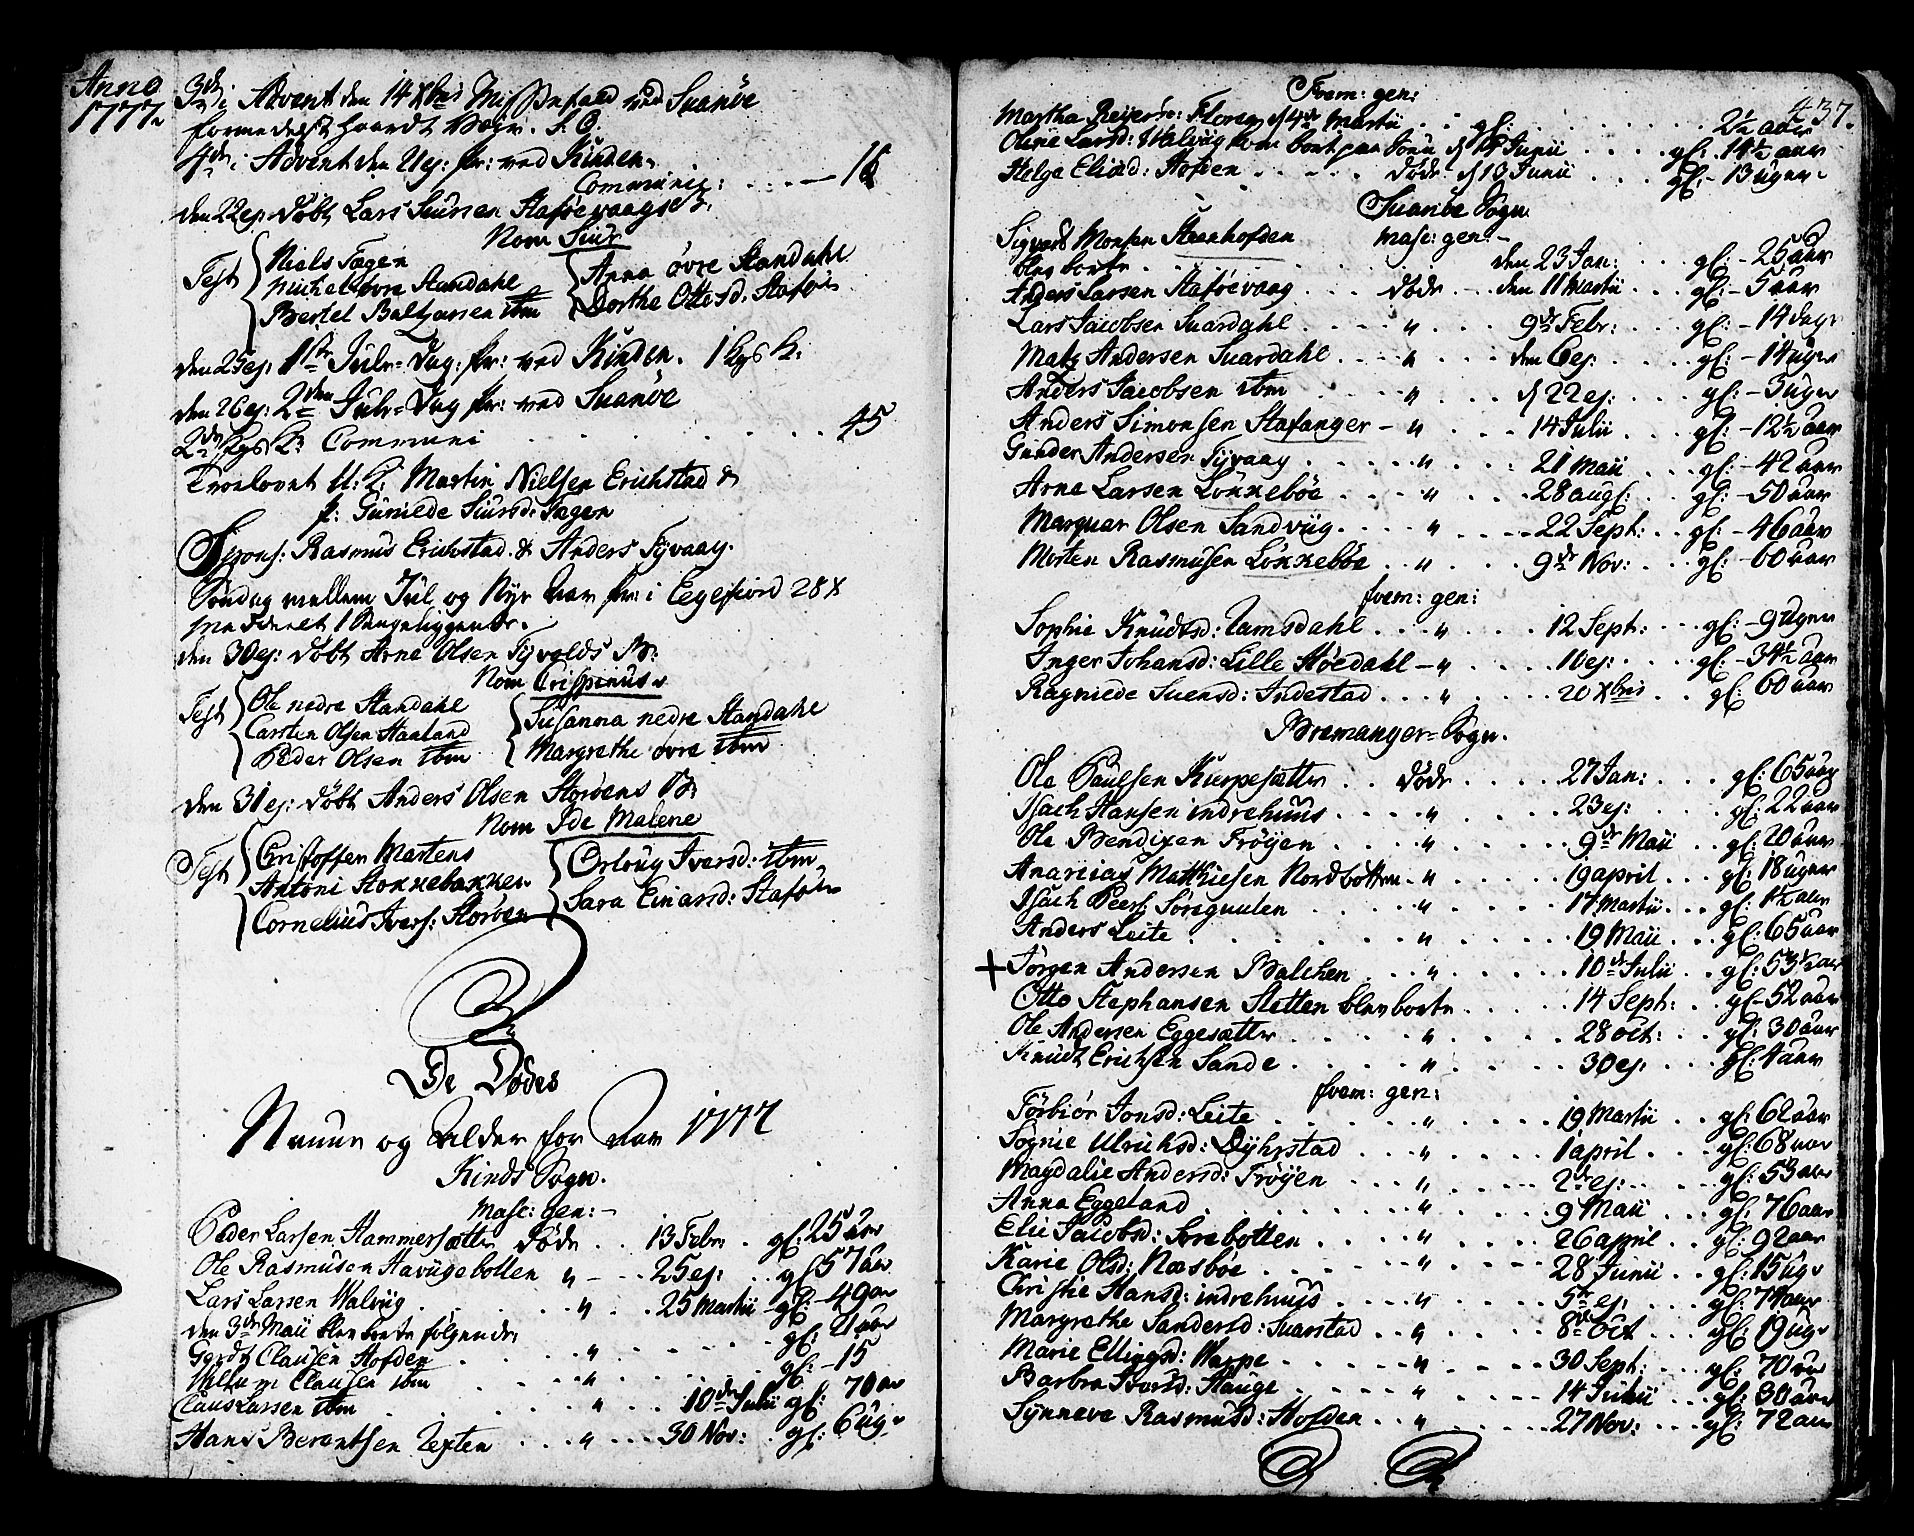 Anno
1777
3de i Advent den 14 Xbris Missenfald ved Suanöe
formedelst haardt Vejr. S. C.
4de i Advent den 21 ej: pr: ved Kinden.
Communic: . . . — 16
den 22 ej: döbt Lars Siursen Staföevaags B:
Nom Siur
Test Niels Fagen
Michel övre Standahl
Bertel Baltzersen ibm
Anna övre Standahl
Dorthe Ottosd: Staföen
den 25 ej: 1ste Jule-Dag: pr: ved Kinden.
den 26 ej: 2den Jule-Dag pr: ved Suanöe
Communi . . . 45
Troelovet Martin Nielsen Erichstad &
p: Gunilde Siursd: Fagen
Spons: Rasmus Erichstad & Anders Tyvaag.
Söndag mellem Jul og Nyt Aar pr: i Eegefiord 28 X
meddeelt 1 Sengeliggende.
den 30 ej: döbt Arne Olsen Tyvolds B:
Nom Crispinus
Test Ole nedre Standahl
Carsten Olsen Haaland
Peder Olsen ibm
Susanna nedre Standahl
Margrethe övre ibm
den 31 ej: döbt Anders Olsen Storöens B:
Nom Ide Malene
Test Christoffen Martens
Antoni Stokkebakken
Cornelius Ivers: Storöen
Ortrug Iversd: ibm
Sara Einarsd: Staföen
De Dödes
Navne og Alder for Aar 1777
Kinds Sogn.
Masc: gen: —
Peder Larsen Hammersætter döde . . 13 Febr: . gl: 25 aar
Ole Rasmusen Havugebotten " — . . 25 ej: . . gl: 57 aar
Lars Larsen Walvüg . . . " . . 25 Martii gl: — 49 aar
den 3de Maii blev borte fölgende: gl:
Gerdt Clausen Hofden . . . " . . . gl: — 15
Clausen ibm . . . "
Claus Larsen ibm . . . " . . 10de Julii gl: 70 aar
Hans Berentsen Texten . . . " . . 30 Nov: . gl: 6 ug:
437.
Foem: gen:
Martha Reiersd: Floren d 4de Martii . . gl: . . . 2½ aar
Oline Larsd: Walvüg kom bort paa Söen d 14 Junii . . . gl: 14½ aar
Helge Eliasd: Hofden . . . döde d 13 Junii . . . gl: — 13 uger
Suanöe Sogn
Masc: gen: —
Sigvard Monsen Steenhofden
blev borte . . . den 23 Jan: . . gl: — 25 aar
Anders Larsen Staföevaag . . döde . . den 11 Martii . . gl: — 5 aar
Lars Jacobsen Suardahl . . . " . . 9de Febr: . . gl: — 14 dage
Matz Andersen Suardahl . . . " . . den 6 ej: . . gl: — 14 uger
Anders Jacobsen ibm . . . " . . d 22 ej: . . gl: — 3 uger
Anders Simonsen Stafanger — " . . 14 Julii . . gl: — 12½ aar
Gunder Andersen Tyvaag . . . " . . 21 Maii . . gl: — 42 aar
Arne Larsen Lökkeböe . . . " . . 28 augs: . . gl: — 50 aar
Marquar Olsen Sandvüg . . . " . . 22 Sept: . . gl: — 46 aar
Morten Rasmusen Lökkeböe . . " . . 9de Nov: . . gl: — 60 aar
foem: gen:
Sophie Knudsd: Ramsdahl . . . " . . 12 Sept: . . gl: — 9 uger
Inger Johansd: Lille Höedahl — " . . 10 ej: . . gl: — 34½ aar
Ragnilde Suensd: Indestad . . . " . . 20 Xbris . . gl: 60 aar
Bremanger-Sogn.
Ole Paulsen Kurpesætter . . döde . . 27 Jan: . . gl: 65 aar
Isach Hansen indrehuus . . . " . . 23 ej: . . gl: 22 aar
Ole Bendixen Fröyen . . . " . . 9de Maii . . gl: 20 aar
Ananias Matthiesen Nordbotten . " . . 19 april . . gl: 18 uger
Isach Peers: Söregaulen . . . " . . 17 Martii . . gl: 1½ aar
Anders Leite . . . " . . 19 Maii . . gl: 65 aar
+ Jörgen Andersen Balchen . . . " . . 10de Julii . . gl: 53½ aar
Otto Stephansen Sletten blev borte . . . 14 Sept: . . gl — 52 aar
Ole Andersen Eggesætter . . . " . . 28 oct: . . gl: 30 aar
Knudt Erichsen Sande . . . " . . 30 ej: . . gl: 4 aar
foem: gen:
Törbiör Jonsd: Leite . . . " . . 19 Martii . . gl: 62 aar
Sognie Ulrichsd: Dyhrstad . . . " . . 1 april . . gl: 68 aar
Magdalie Andersd: Fröyen . . . " . . 2de ej: . . gl: 53 aar
Anna Eggeland . . . " . . 9 Maii . . gl: 76 aar
Elie Jacobsd: Sörebotten . . . " . . 26 april . . gl: 92 aar
Karie Olsd: Næsböe . . . " . . 28 Junii . . gl: 15 ug:
Christie Hansd: indrehuus . . . " . . 5te ej: . . gl: 74 aar
Margrethe Sandersd: Suarstad . . " . . 8de Oct . . gl: 19 ug:
Marie Ellingsd: Warpe . . . " . . 30 Sept: . . gl: 70 aar
Barbra Iversd: Hauge . . . " . . 14 Julii . . gl: 30 aar
Synneve Rasmusd: Hofden . . " . . 27 Nov: . . gl: 72 aar